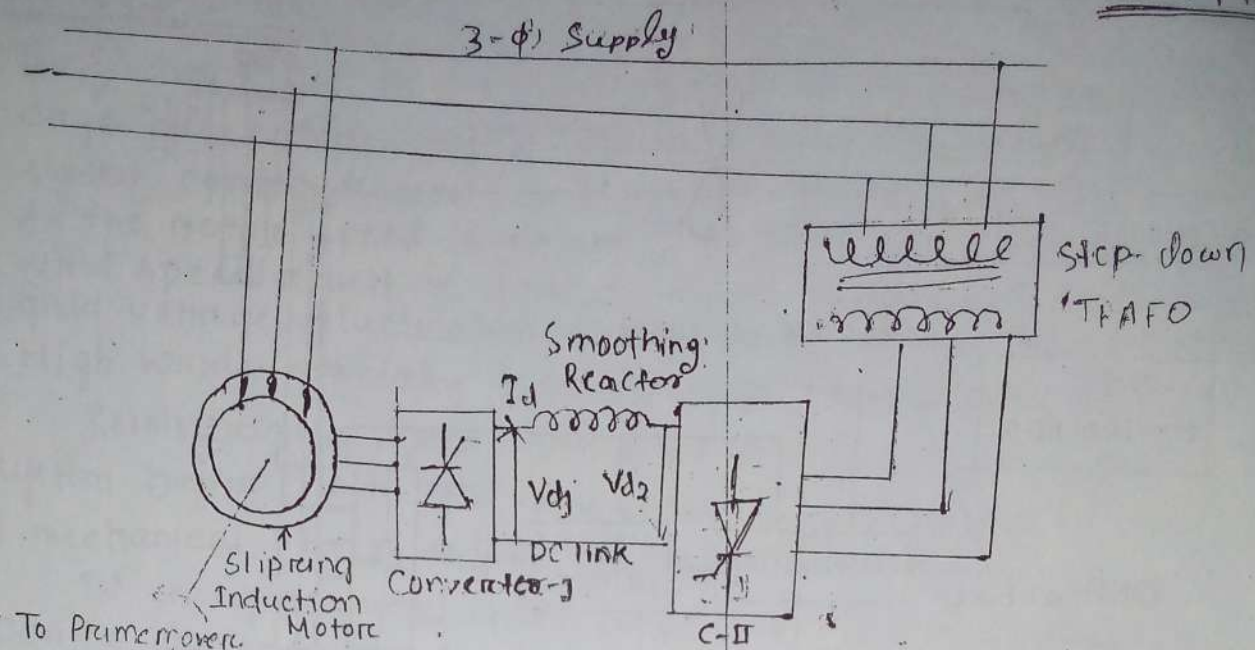 3-φ Supply
Step-down
TRAFO
Smoothing
Reactor
Id
Vd1
Vd2
DC link
Slipring
Induction
Motore
Converter-I
C-II
To Primemover